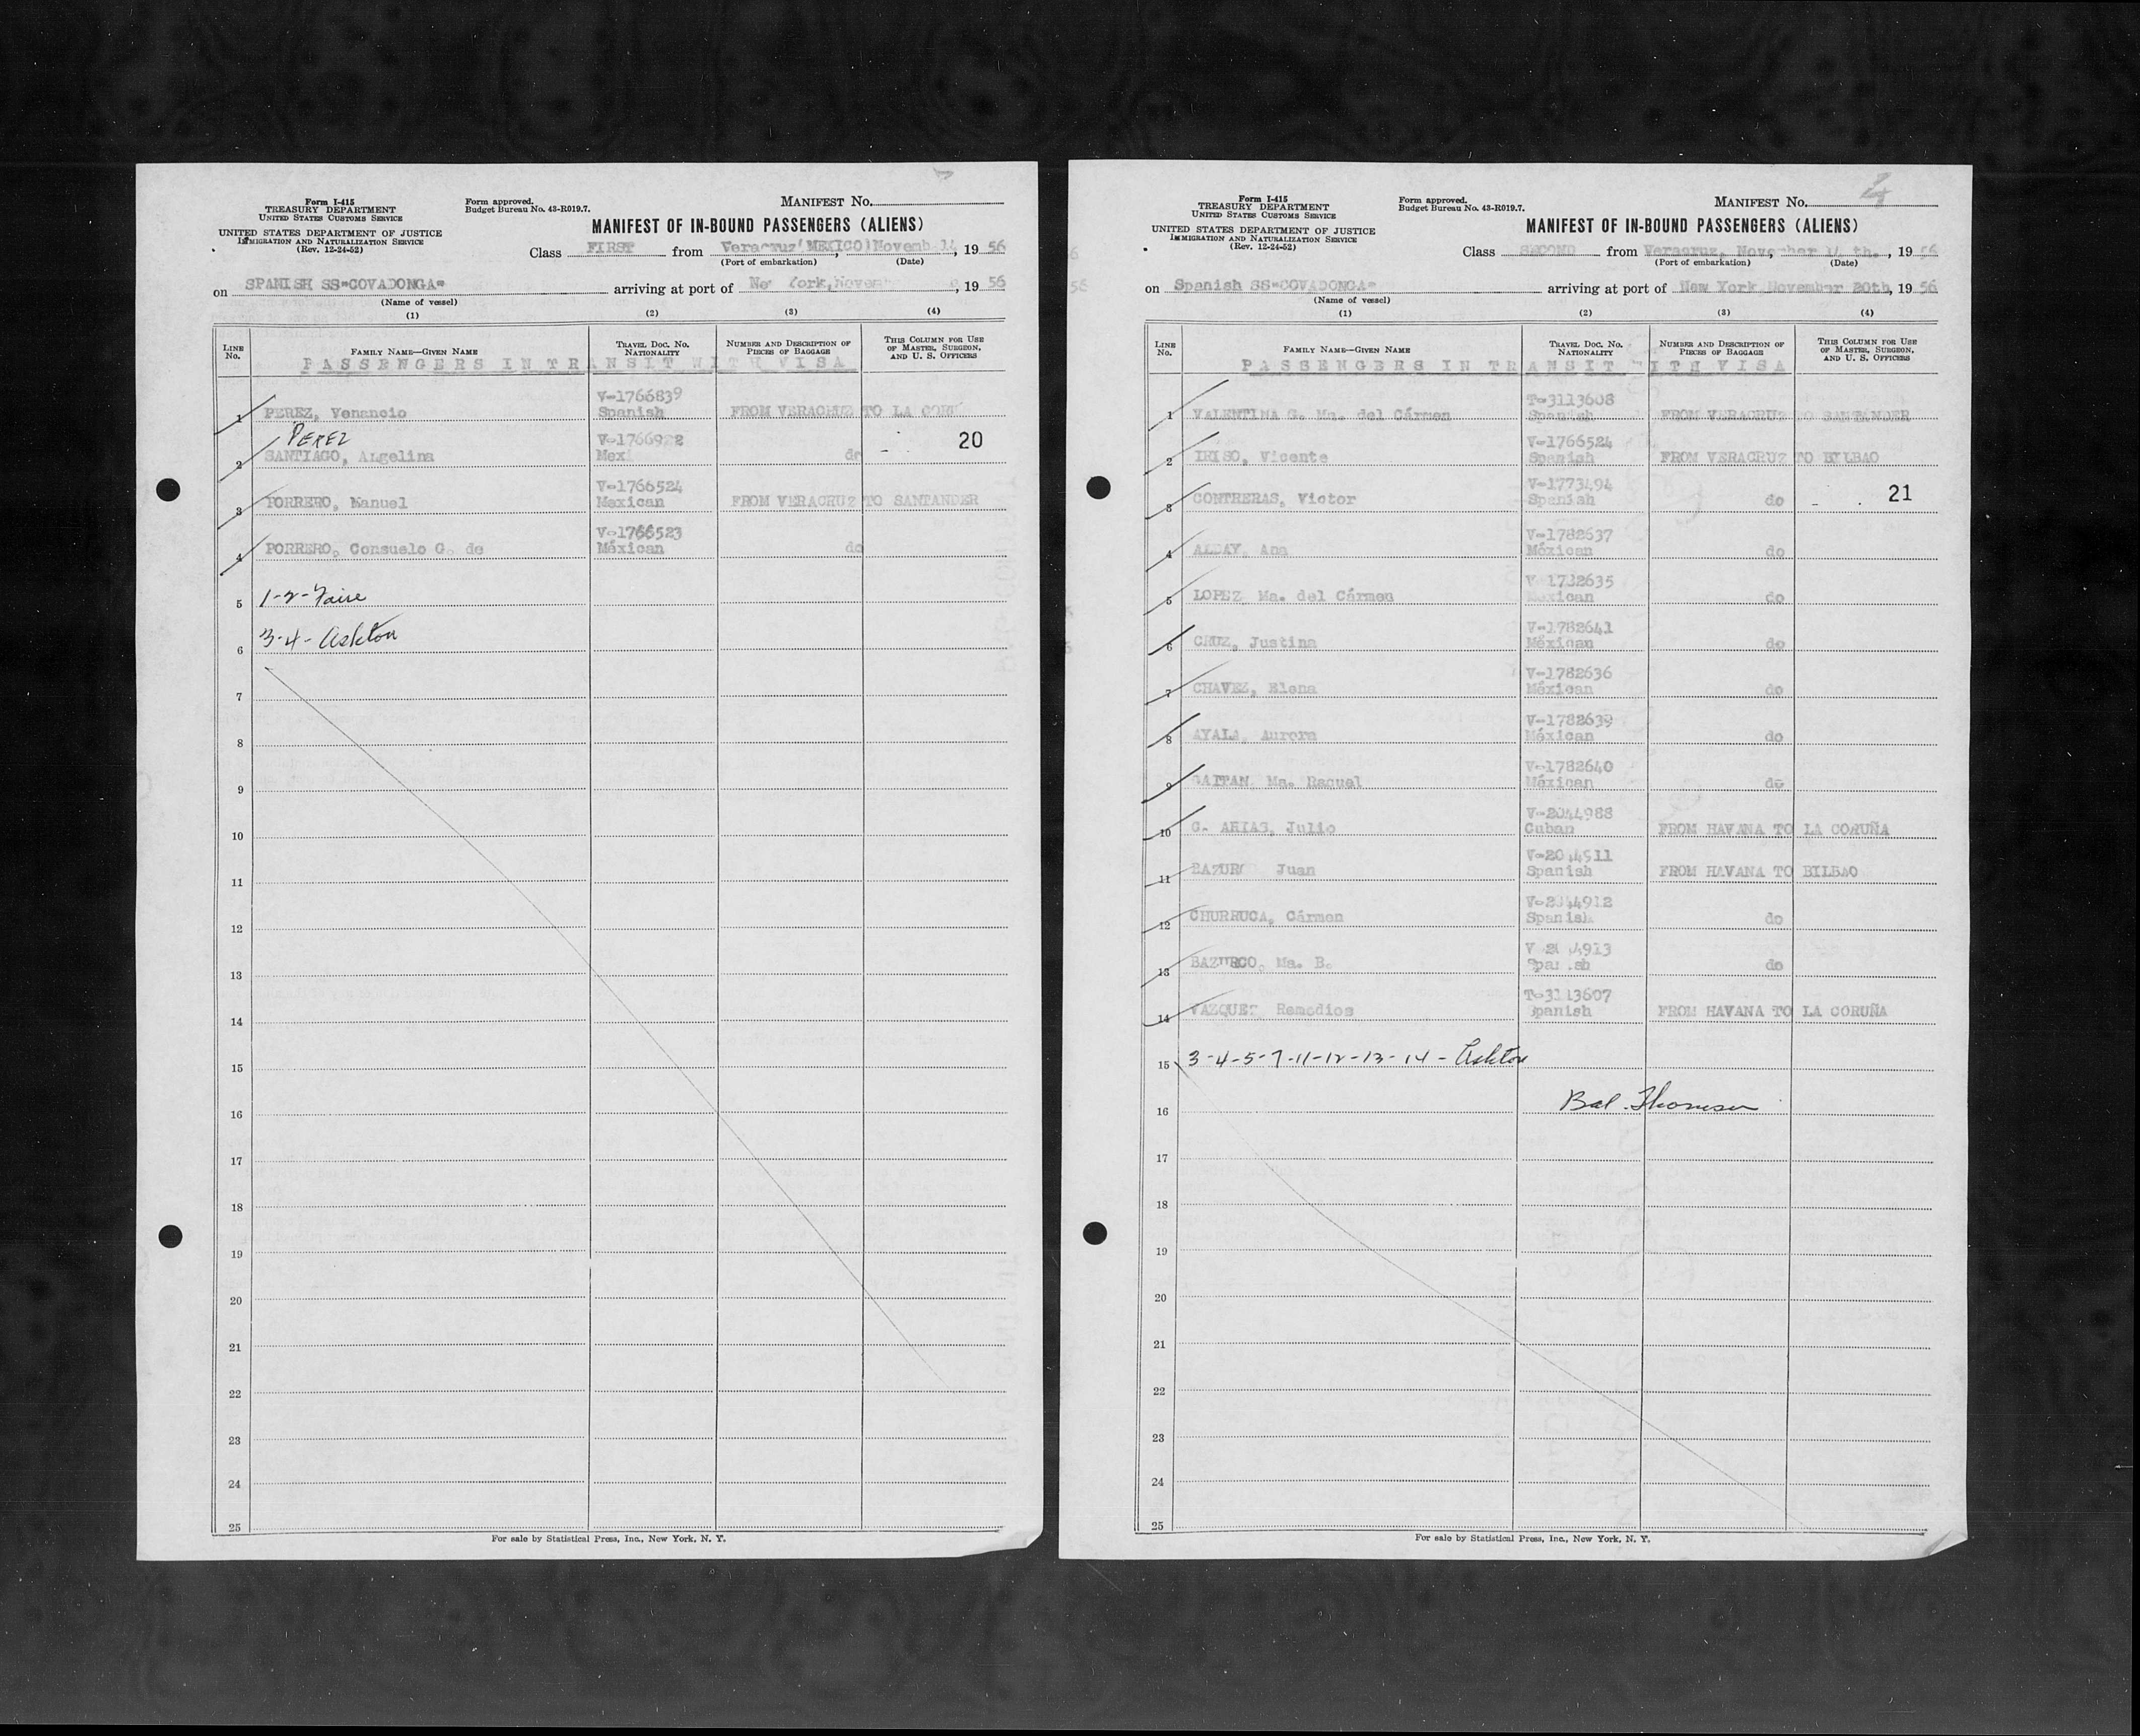 Form I-415
TREASURY DEPARTMENT
UNITED STATES CUSTOMS SERVICE
UNITED STATES DEPARTMENT OF JUSTICE
IMMIGRATION AND NATURALIZATION SERVICE
(Rev. 12-24-52)
Form approved.
Budget Bureau No. 43-R019.7.
MANIFEST No.
MANIFEST OF IN-BOUND PASSENGERS (ALIENS)
Class FIRST from Veracruz (MEXICO) Novemb 14, 19 56
(Port of embarkation) (Date)
on SPANISH SS"COVADONGA" arriving at port of New York, Novem , 19 56
(Name of vessel)
(1) (2) (3) (4)
LINE No. FAMILY NAME—GIVEN NAME TRAVEL DOC. No. NATIONALITY NUMBER AND DESCRIPTION OF PIECES OF BAGGAGE THIS COLUMN FOR USE OF MASTER, SURGEON, AND U. S. OFFICERS
PASSENGERS IN TRANSIT WITH VISA
1 PEREZ, Venancio V-1766839 Spanish FROM VERACRUZ TO LA CORU
PEREZ
2 SANTIAGO, Angelina Mex do 20
3 PORRERO, Manuel V-1766524 Mexican FROM VERACRUZ TO SANTANDER
4 PORRERO, Consuelo G. de V-1766523 Méxican do
5 1-2-Faire
6 3-4-Ashton
7
8
9
10
11
12
13
14
15
16
17
18
19
20
21
22
23
24
25
For sale by Statistical Press, Inc., New York, N. Y.
Form I-415
TREASURY DEPARTMENT
UNITED STATES CUSTOMS SERVICE
UNITED STATES DEPARTMENT OF JUSTICE
IMMIGRATION AND NATURALIZATION SERVICE
(Rev. 12-24-52)
Form approved.
Budget Bureau No. 43-R019.7.
MANIFEST No.
MANIFEST OF IN-BOUND PASSENGERS (ALIENS)
Class SECOND from Veracruz, November 14 th., 19 56
(Port of embarkation) (Date)
on Spanish SS"COVADONGA" arriving at port of New York November 20th, 19 56
(Name of vessel)
(1) (2) (3) (4)
LINE No. FAMILY NAME—GIVEN NAME TRAVEL DOC. No. NATIONALITY NUMBER AND DESCRIPTION OF PIECES OF BAGGAGE THIS COLUMN FOR USE OF MASTER, SURGEON, AND U. S. OFFICERS
PASSENGERS IN TRANSIT WITH VISA
1 VALENTINA G. Ma. del Cármen T-3113608 Spanish FROM VERACRUZ TO SANTANDER
2 IRISO, Vicente V-1766524 Spanish FROM VERACRUZ TO BILBAO
3 CONTRERAS, Victor V-1773494 Spanish do 21
4 ALDAY, Ana V-1782637 Méxican do
5 LOPEZ, Ma. del Cármen V-1782635 Mexican do
6 CRUZ, Justina V-1782641 Méxican do
7 CHAVEZ, Elena V-1782636 Méxican do
8 AYALA, Aurora V-1782639 Méxican do
9 GAITAN, Ma. Raquel V-1782640 Méxican do
10 G. ARIAS, Julio V-2044988 Cuban FROM HAVANA TO LA CORUÑA
11 BAZURCO Juan V-2044911 Spanish FROM HAVANA TO BILBAO
12 CHURRUCA, Cármen V-2044912 Spanish do
13 BAZURCO, Ma. B. Spanish do
14 VAZQUEZ Remedios T-3113607 Spanish FROM HAVANA TO LA CORUÑA
15 3-4-5-7-11-12-13-14-Ashton
16 Bal. Thomson
17
18
19
20
21
22
23
24
25
For sale by Statistical Press, Inc., New York, N. Y.